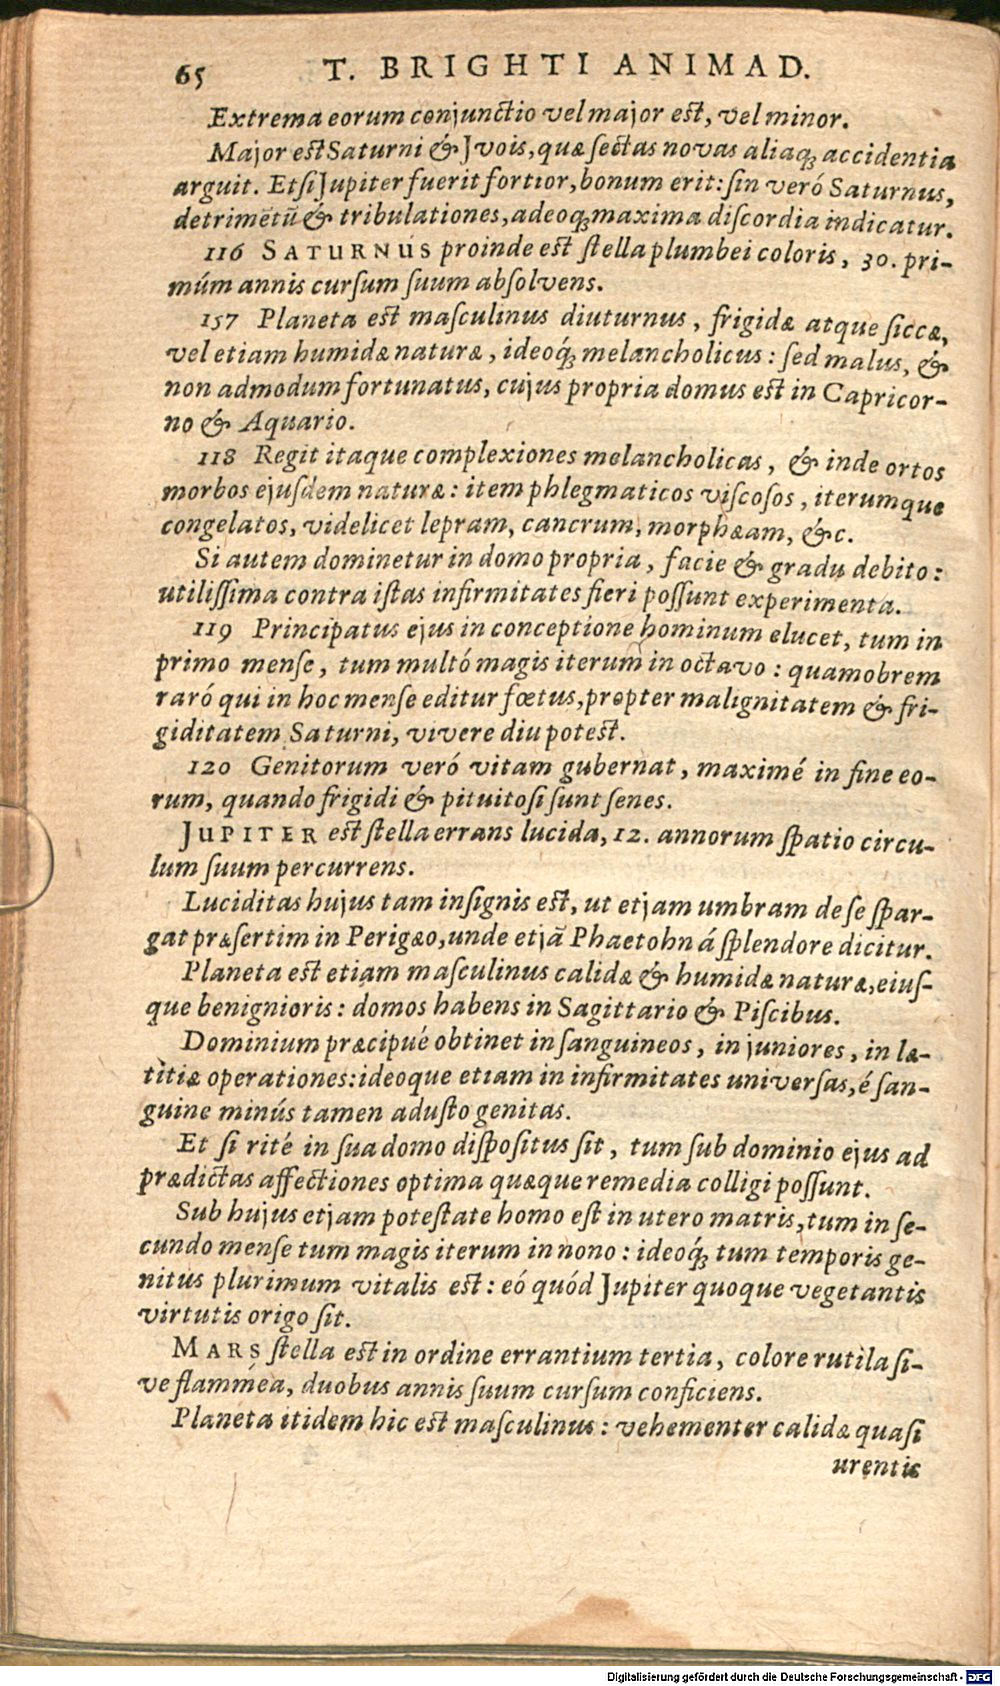 65 T. BRIGHTI ANIMAD.
Extrema eorum conjunctio vel major est, vel minor.
Major est Saturni & Jvois, quæ sectas novas aliaq́; accidentia
arguit. Et si Jupiter fuerit fortior, bonum erit: sin veró Saturnus,
detrimētū & tribulationes, adeoq́; maxima discordia indicatur.
116 SATURNUS proinde est stella plumbei coloris, 30. pri-
múm annis cursum suum absolvens.
157 Planeta est masculinus diuturnus, frigidæ atque siccæ,
vel etiam humidæ naturæ, ideoq́; melancholicus: sed malus, &
non admodum fortunatus, cujus propria domus est in Capricor-
no & Aquario.
118 Regit itaque complexiones melancholicas, & inde ortos
morbos ejusdem naturæ: item phlegmaticos viscosos, iterumque
congelatos, videlicet lepram, cancrum, morphæam, &c.
Si autem dominetur in domo propria, facie & gradu debito:
utilissima contra istas infirmitates fieri possunt experimenta.
119 Principatus ejus in conceptione hominum elucet, tum in
primo mense, tum multó magis iterum in octavo: quamobrem
raró qui in hoc mense editur fœtus, propter malignitatem & fri-
giditatem Saturni, vivere diu potest.
120 Genitorum veró vitam gubernat, maximé in fine eo-
rum, quando frigidi & pituitosi sunt senes.
JUPITER est stella errans lucida, 12. annorum spatio circu-
lum suum percurrens.
Luciditas hujus tam insignis est, ut etjam umbram de se spar-
gat præsertim in Perigæo, unde etjā Phaetohn á splendore dicitur.
Planeta est etiam masculinus calidæ & humidæ naturæ, eius-
que benignioris: domos habens in Sagittario & Piscibus.
Dominium præcipué obtinet in sanguineos, in juniores, in læ-
titiæ operationes: ideoque etiam in infirmitates universas, é san-
guine minús tamen adusto genitas.
Et si rité in sua domo dispositus sit, tum sub dominio ejus ad
prædictas affectiones optima quæque remedia colligi possunt.
Sub hujus etjam potestate homo est in utero matris, tum in se-
cundo mense tum magis iterum in nono: ideoq́; tum temporis ge-
nitus plurimum vitalis est: eó quód Jupiter quoque vegetantis
virtutis origo sit.
MARS stella est in ordine errantium tertia, colore rutila si-
ve flammea, duobus annis suum cursum conficiens.
Planeta itidem hic est masculinus: vehementer calidæ quasi
urentis
Digitalisierung gefördert durch die Deutsche Forschungsgemeinschaft - DFG